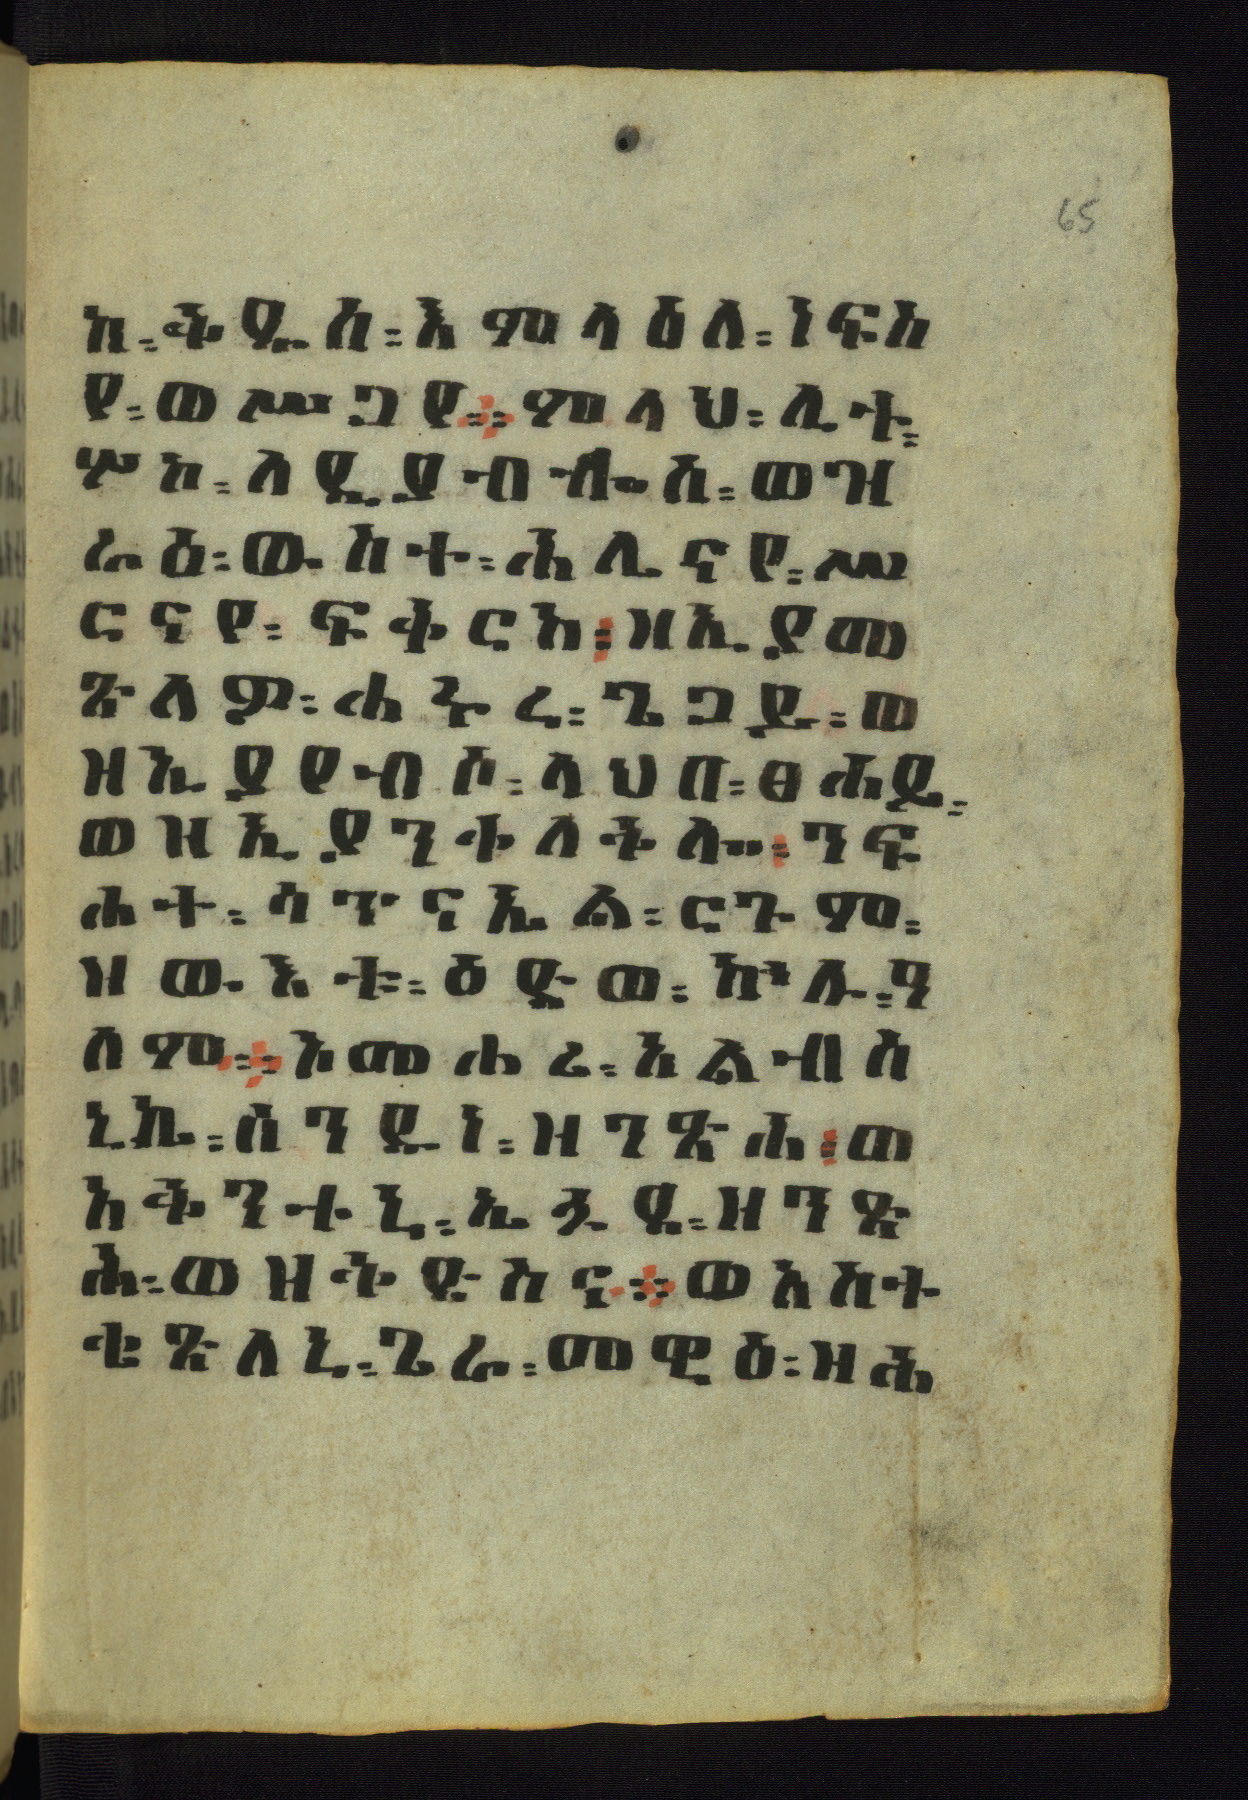 65
ከ፡ቅዱስ፡እምላዕለ፡ነፍስ
የ፡ወሥጋየ፨ምላህ፡ሊተ፡
ሦከ፡ለዪያብሎስ፡ወዝ
ራዕ፡ውስተ፡ሕሊናየ፡ሥ
ርናየ፡ፍቅርከ፡ዘኢያመ
ጽለም፡ሐኵረ፡ጌጋይ፡ወ
ዘኢያየብሶ፡ላህበ፡ፀሐይ፡
ወዘኢያንቀለቅሎ፡ንፍ
ሐተ፡ሳጥናኤል፡ርጉም፡
ዘውእቱ፡ዕድወ፡ኵሉ፡ዓ
ለም፨አመሐረ፡አልብስ
ኒኬ፡ሰንዱነ፡ዘንጽሕ፡ወ
አቅንተኒ፡ኢኃዪ፡ዘንጽ
ሕ፡ወዘቅድስና፨ወአስተ
ቄጽለኒ፡ጌራ፡መዊዕ፡ዘሕ